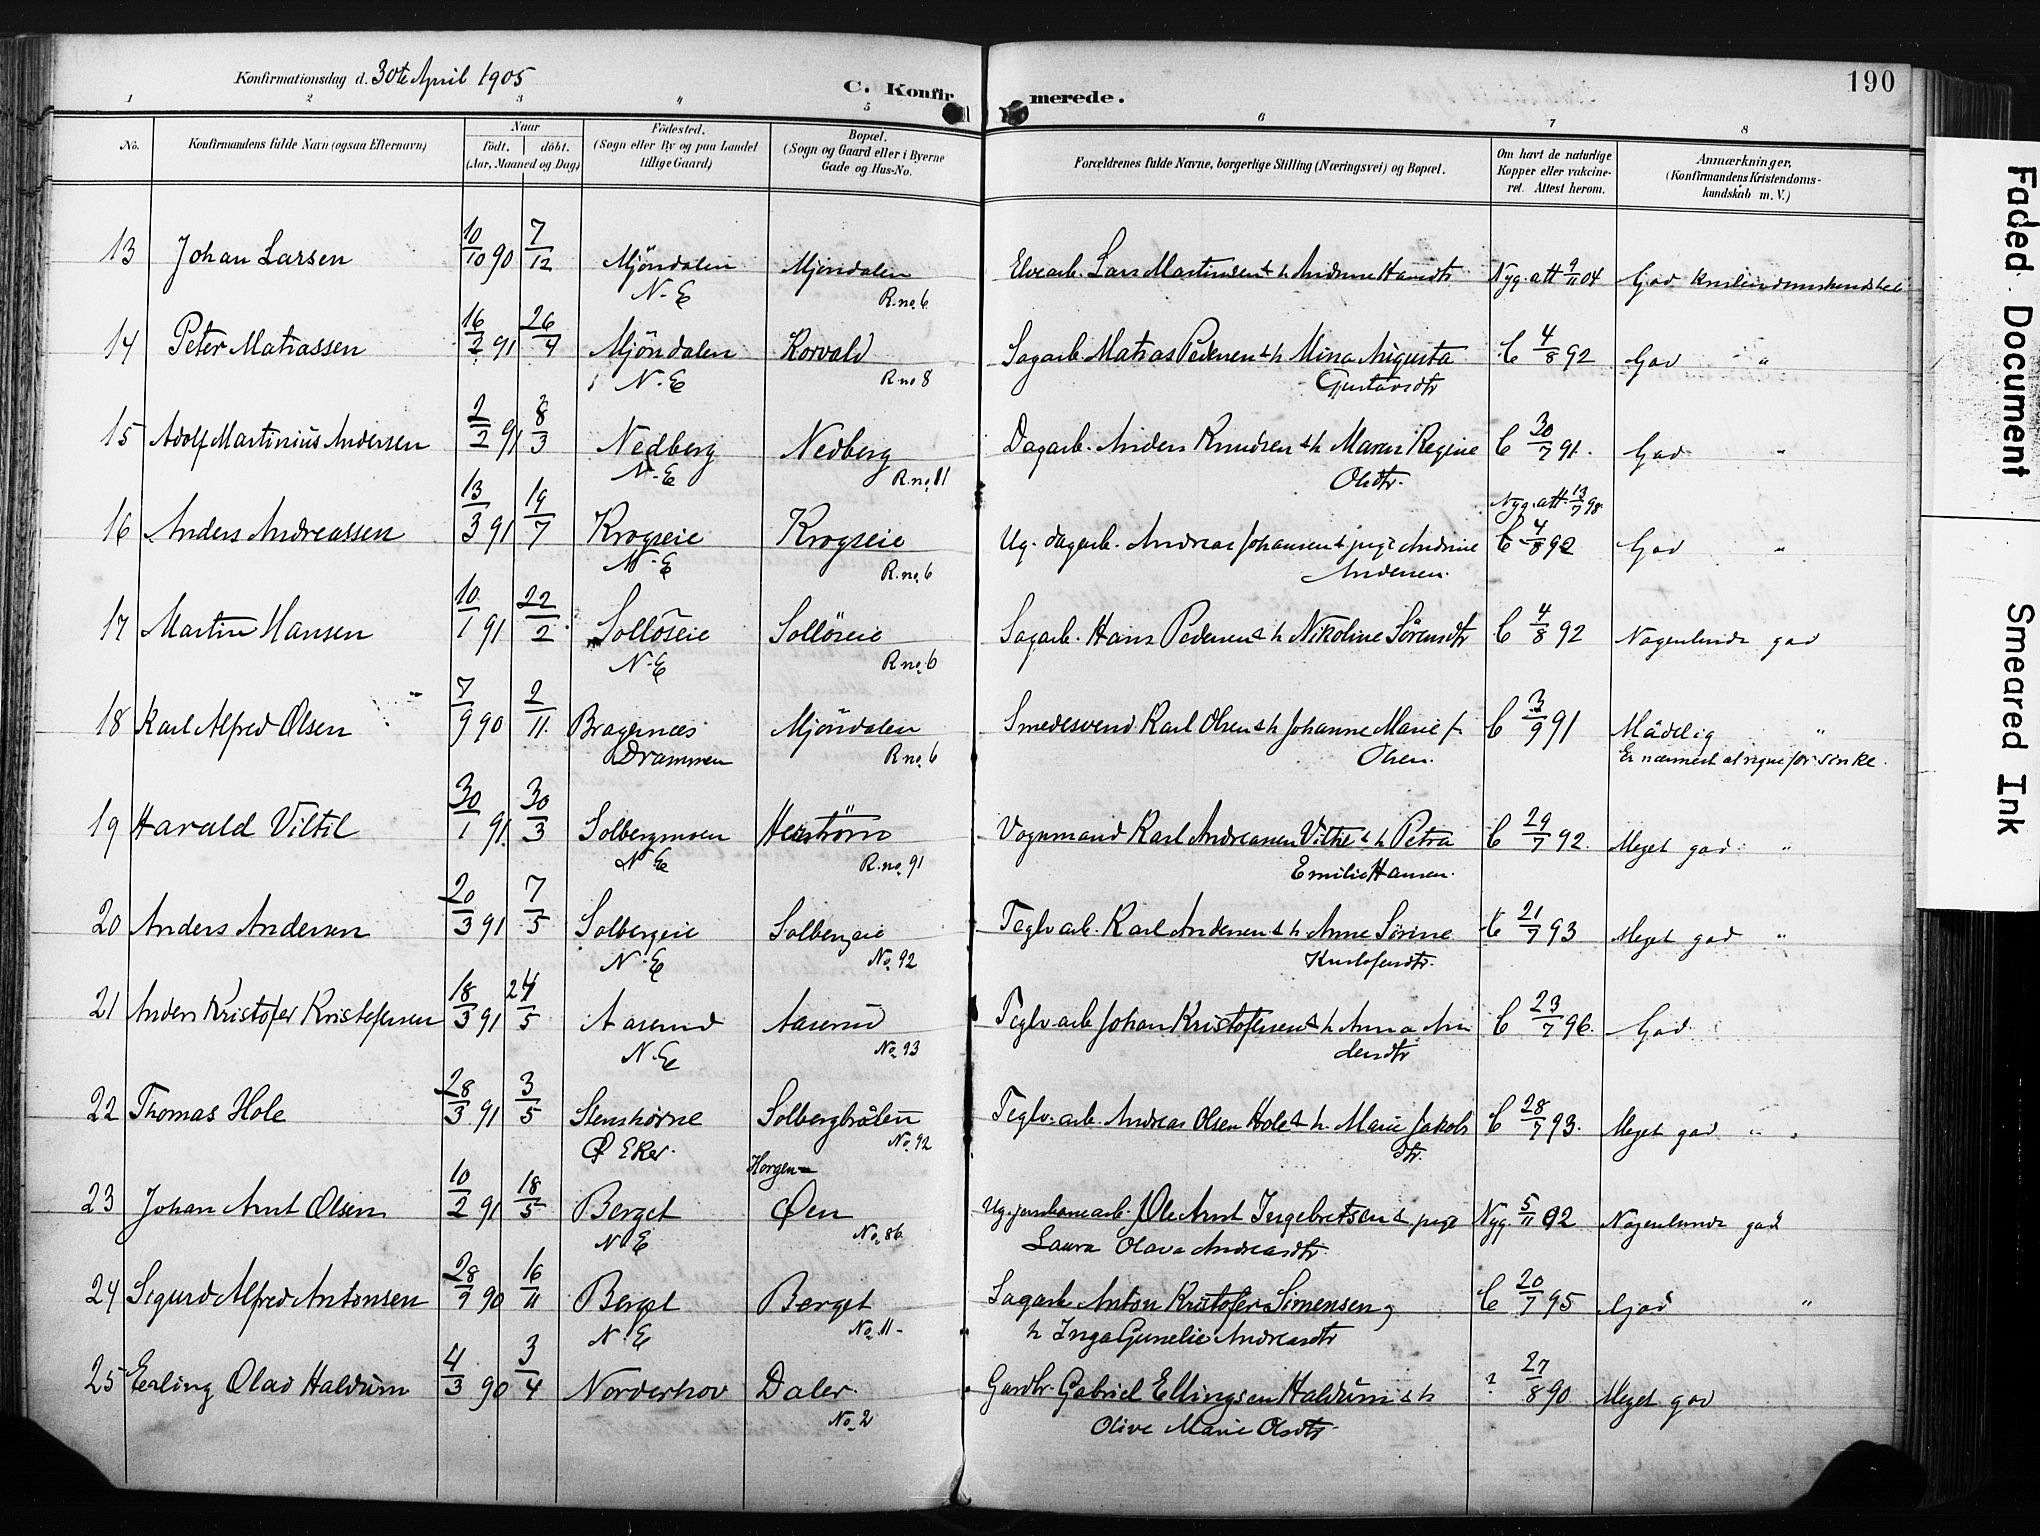 Konfirmationsdag d. 30te April 1905
C. Konfirmerede.
190
1 2 3 4 5 6 7 8
No.
Konfirmandens fulde Navn (ogsaa Efternavn)
Naar
födt. döbt.
(Aar, Maaned og Dag)
Födested.
(Sogn eller By og paa Landet
tillige Gaard)
Bopæl.
(Sogn og Gaard eller i Byerne
Gade og Hus-No.
Forældrenes fulde Navne, borgerlige Stilling (Næringsvei) og Bopæl.
Om havt de naturlige
Kopper eller vakcine-
ret. Attest herom.
Anmærkninger,
(Konfirmandens Kristendoms-
kundskab m. V.)
13 Johan Larsen 10/10 90 7/12 Mjöndalen Mjöndalen Elvearb. Lars Martinsen & h Nyg. att 9/11 04 God
N. E R. no. 6
14 Peter Matiassen 16/2 91 26/4 Mjöndalen Korvald Sagarb. Matias Pedersen & h Mina Augusta C 4/8 92 God "
N. E R. no 8 Gustavsdtr
15 Adolf Martinius Andersen 2/2 91 8/3 Nedberg Nedberg Dagarb. Anders Knudsen & h Maren Regine C 30/7 91. God "
N. E R. no. 11 Olsdtr.
Nyg. att. 13/7 98
16 Anders Andreassen 13/3 91 19/7 Krogseie Krogseie Ug. dagarb. Andreas Johansen & pige Andrine C 4/8 92 God "
N. E R. no. 6 Andersen.
17 Martin Hansen 10/1 91 22/2 Sollöseie Sollöseie Sagarb. Hans Pedersen & h Nikoline Sörensdtr C 4/8 92 Nogenlunde god
N. E R no. 6
18 Karl Alfred Olsen 7/9 90 2/11 Bragernes Mjöndalen Smedesvend Karl Olsen & h Johanne Marie f. C 3/9 91 Mådelig "
Drammen R. no. 6 Olsen. Er nærmest at regne for sinke.
19 Harald Viltil 30/1 91. 30/3 Solbergmoen Vognmand Karl Andreasen & h Petra C 29/7 92. Meget god "
N. E R. no. 91 Emilie Hansen.
20 Anders Andersen 20/3 91 7/5 Solbergeie Solbergeie Teglv. arb. Karl Andersen & h Anne Sörine C 21/7 93 Meget god "
N. E No. 92 Kristofersdtr.
21 Anders Kristofer Kristofersen 18/3 91 24/5 Aaserud Aaserud Teglv. arb Johan Kristofersen & h Anna An C 23/7 96. God
N. E No. 93 dersdtr
22 Thomas Hole 28/3 91 3/5 Stenshorne Solberghölen Teglv. arb. Andreas Olsen Hole & h. Marie Jakobs C 28/7 93. Meget god "
Ø Eker. No. 92 dtr.
Horgen-
23 Johan Arnt Olsen 10/2 91 18/5 Berget Øen Ug. Ole Arnt Ingebretsen & pige Nyg. 5/11 02 Nogenlunde god
N. E No. 86 Laura Olava Andreasdtr
24 Sigurd Alfred Antonsen 28/9 90 16/11 Berget Berget Sagarb. Anton Kristofer Simensen, C 20/7 95 God "
N. E No. 11 - h Inga Gunelie Andreasdtr
25 Erling Olad Haldum 4/3 90 3/4 Norderhov Daler. Gardbr. Gabriel Ellingsen Haldum & h ? 27/8 90 Meget god
No. 2 Olive Marie Olsdtr.
Faded Document
Smeared Ink